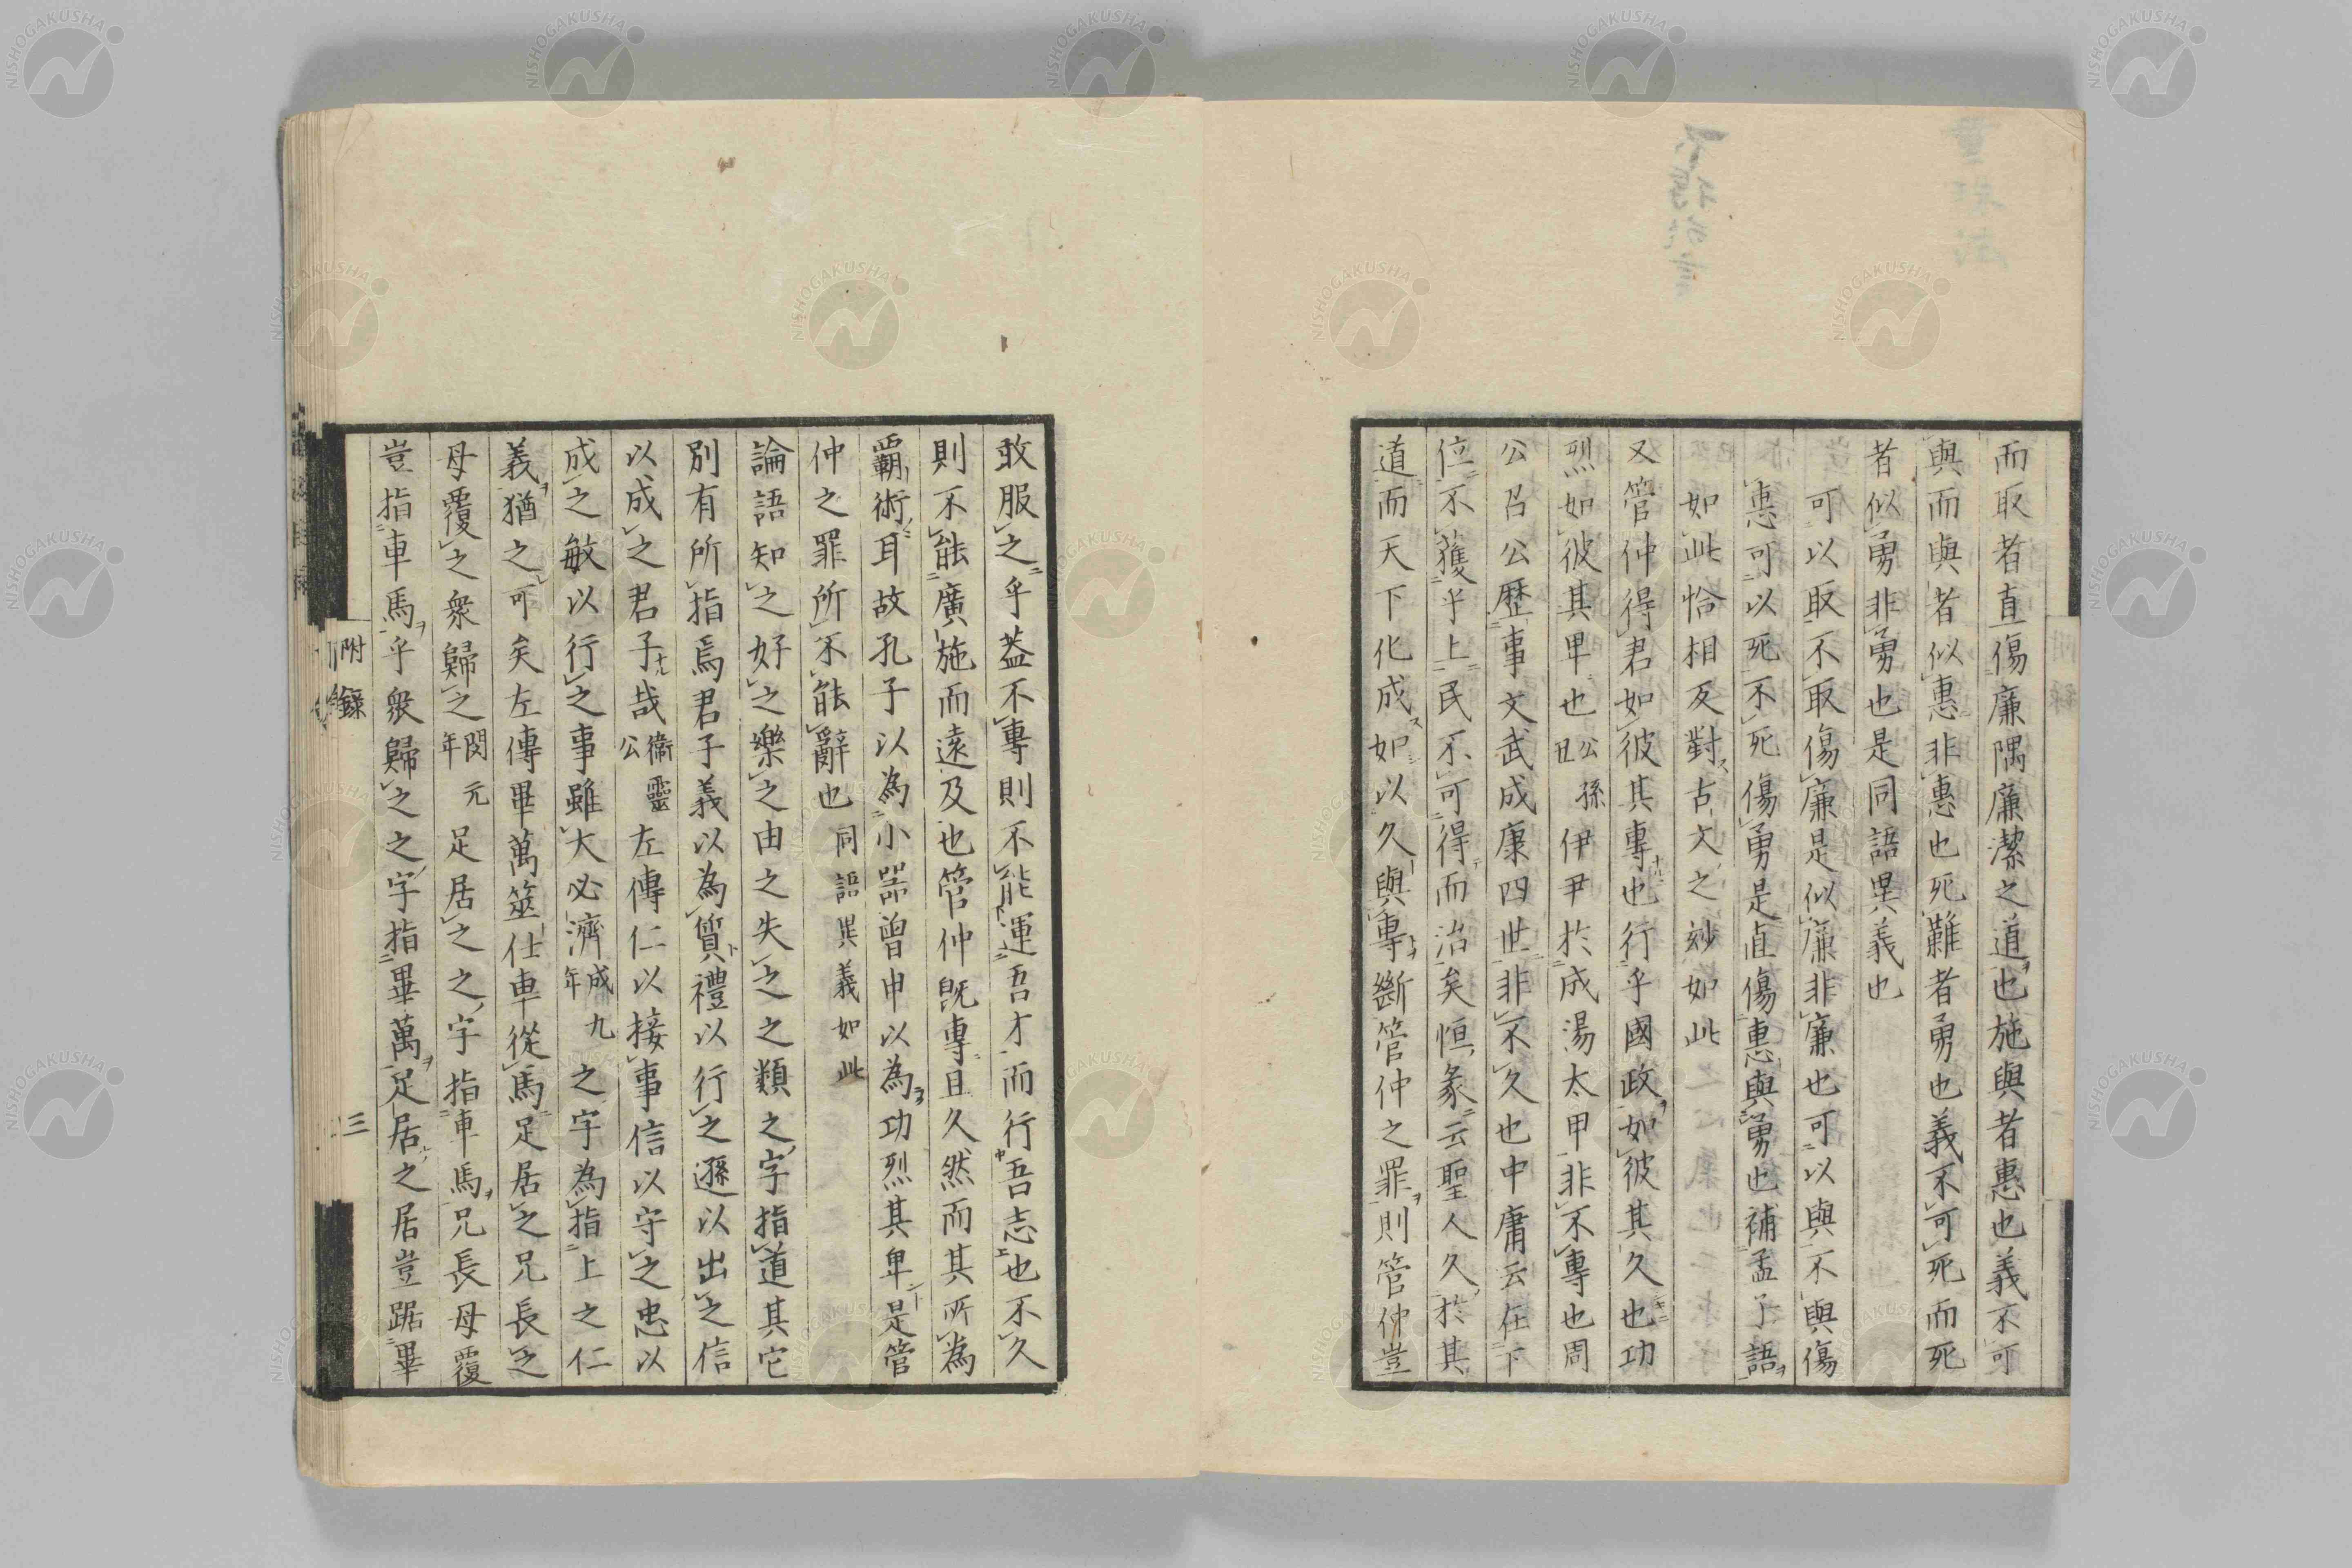 而取者直傷廉隅廉潔之道也施與者惠也義不可
與而與者似惠非惠也死難者勇也義不可死而死
者似勇非勇也是同語異義也
可以取不取傷廉是似廉非廉也可以與不與傷
惠可以死不死傷勇是直傷惠與勇也補孟子語
如此恰相反對古文之妙如此
又管仲得君如彼其專也行乎國政如彼其久也功
烈如彼其卑也公孫丑伊尹於成湯太甲非不專也周
公召公歷事文武成康四世非不久也中庸云在下
位不獲乎上民不可得而治矣恒彖云聖人久於其
道而天下化成如以久與專斷管仲之罪則管仲豈
敢服之乎蓋不專則不能運吾才而行吾志也不久
則不能廣施而遠及也管仲既專且久然而其所為
霸術耳故孔子以為小器曾申以為功烈其卑是管
仲之罪所不能辭也同語異義如此
論語知之好之樂之由之失之之類之字指道其它
別有所指焉君子義以為質禮以行之遜以出之信
以成之君子哉衛靈公左傳仁以接事信以守之忠以
成之敏以行之事雖大必濟成九年之字為指上之仁
義猶之可矣左傳畢萬筮仕車從馬足居之兄長之
母覆之衆歸之閔元年足居之之字指車馬兄長母覆
豈指車馬乎衆歸之之字指畢萬足居之居豈踞畢
附錄
三
NISHOGAKUSHA